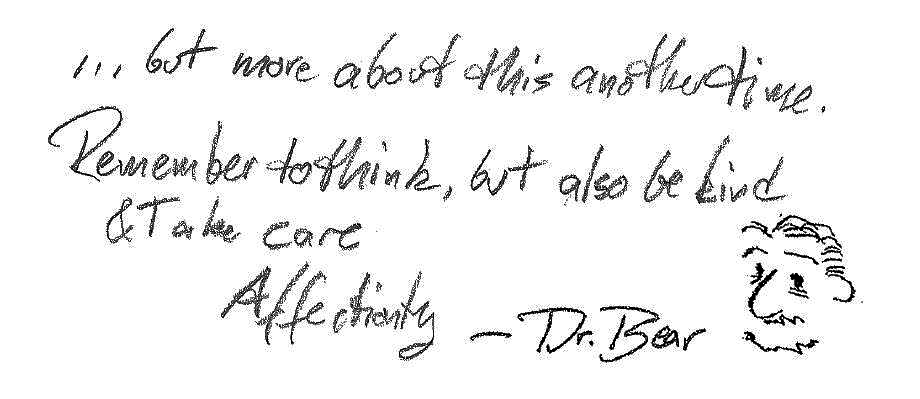 ... but more about this another time.
Remember to think, but also be kind
& Take care
Affectionty
– Dr. Bear